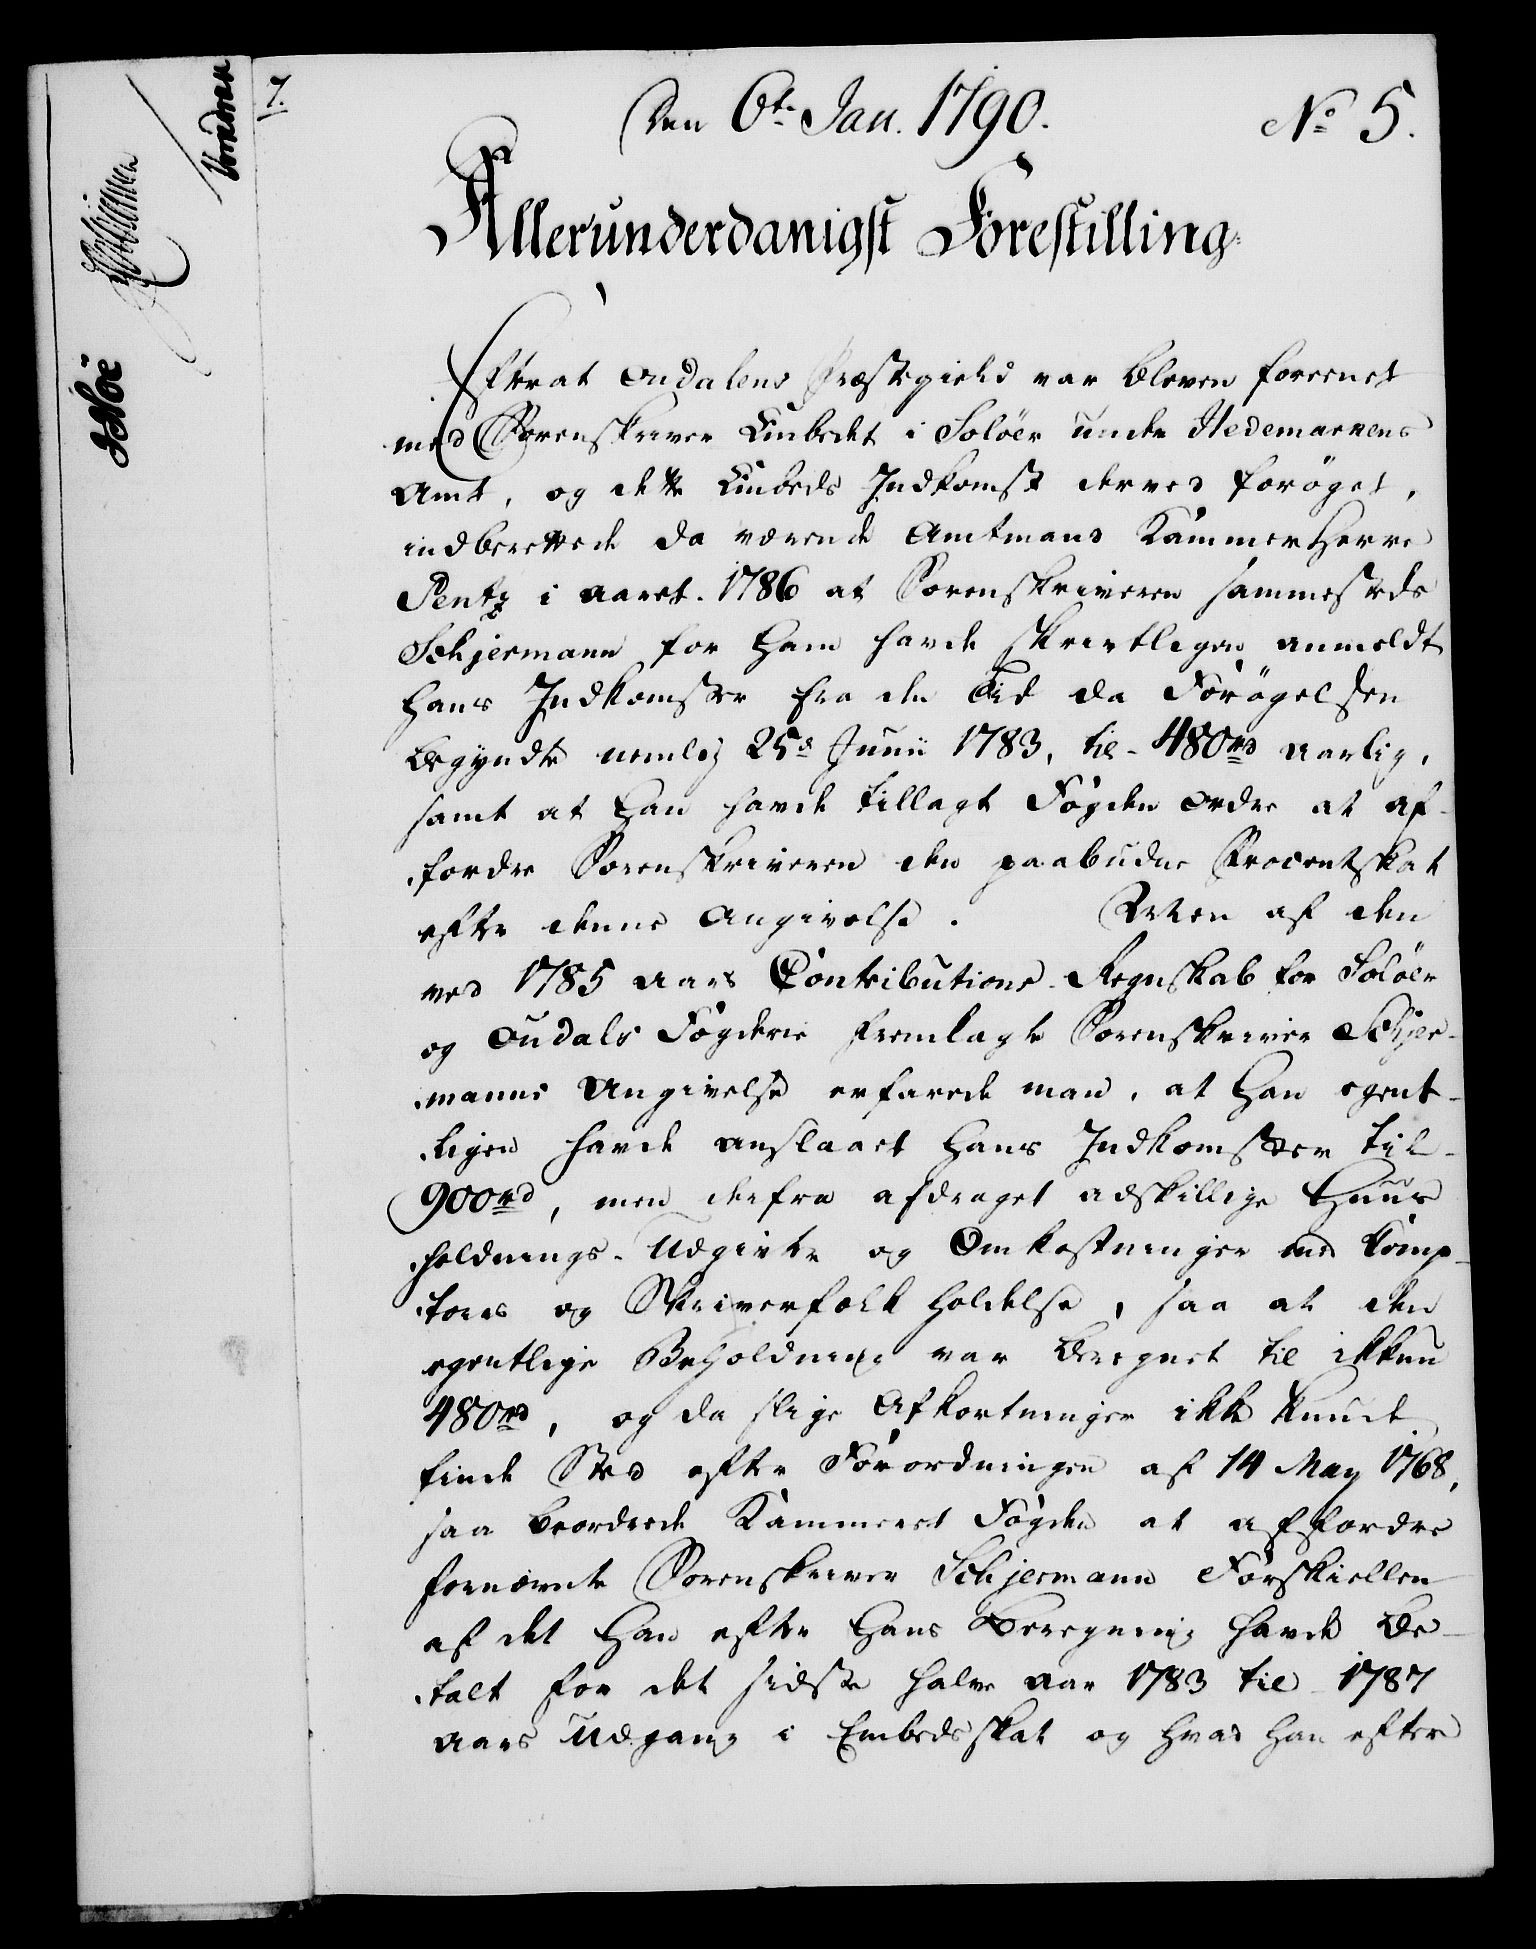 7.
Den 6te Jan. 1790.
No 5.
Allerunderdanigst Forestilling.
Efterat Oudalens Præstegield var bleven foreenet
med Sorenskriver Embedet i Soløer under Hedemarkens
Amt, og dette Embeds Indkomst derved forøget,
indberettede da værende Amtmand Kammer Herre
Pentz i Aaret 1786 at Sorenskriveren sammesteds
Schjermann for Ham havde skrivtligen anmeldt
Hans Indkomster fra den Tid da Forøgelsen
begyndte nemlig 25d Junii 1783, til 480rd aarlig,
samt at Han havde tillagt Fogden Ordre at af-
fordre Sorenskriveren den paabudne Procentskat
efter denne Angivelse. Men af den
ved 1785 Aars Contributions-Regnskab for Soløer
og Oudals Fogderie fremlagte Sorenskriver Schjer-
manns Angivelse erfarede man, at Han egent-
ligen havde anslaaet Hans Indkomster til
900rd, men derfra afdraget adskillige Huus
holdnings-Udgivter og Omkostninger med Comp-
toirs og Skriverfolk Holdelse, saa at den
egentlige Beholdning var beregnet til ikkun
480rd, og da slige Afkortninger ikke kunde
finde Sted efter Forordningen af 14 May 1768,
saa beordrede Kammeret Fogden at affordre
fornævnte Sorenskriver Schjermann Forskiellen
af det Han efter Hans Beregning havde be-
talt for det sidste halve Aar 1783 til 1787
Aars Udgang i Embedsskat og hvad han efter